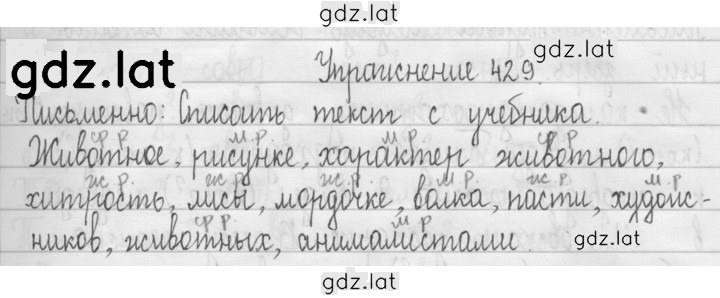 gdz.lat
gdz.lat
gdz.lat
Упражнение 429.
Письменно: Списать текст с учебника.
ср. р. м. р. м. р. ср. р.
Животное, рисунке, характер животного,
ж. р. ж. р. ж. р. м. р. ж. р. м. р.
хитрость, лисы, мордочке, волка, пасти, худож-
ср. р. м. р.
ников, животных, анималистами.
gdz.lat
gdz.lat